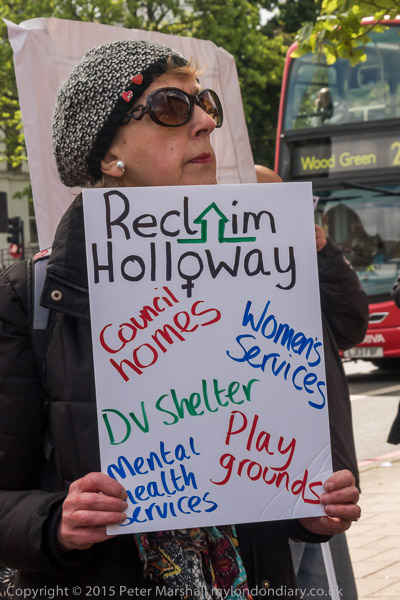 Wood Green 2
Reclaim
Holloway
Council
homes
Women's
Services
DV Shelter
Play
grounds
Mental
health
Services
Copyright © 2015 Peter Marshall mylondondiary.co.uk